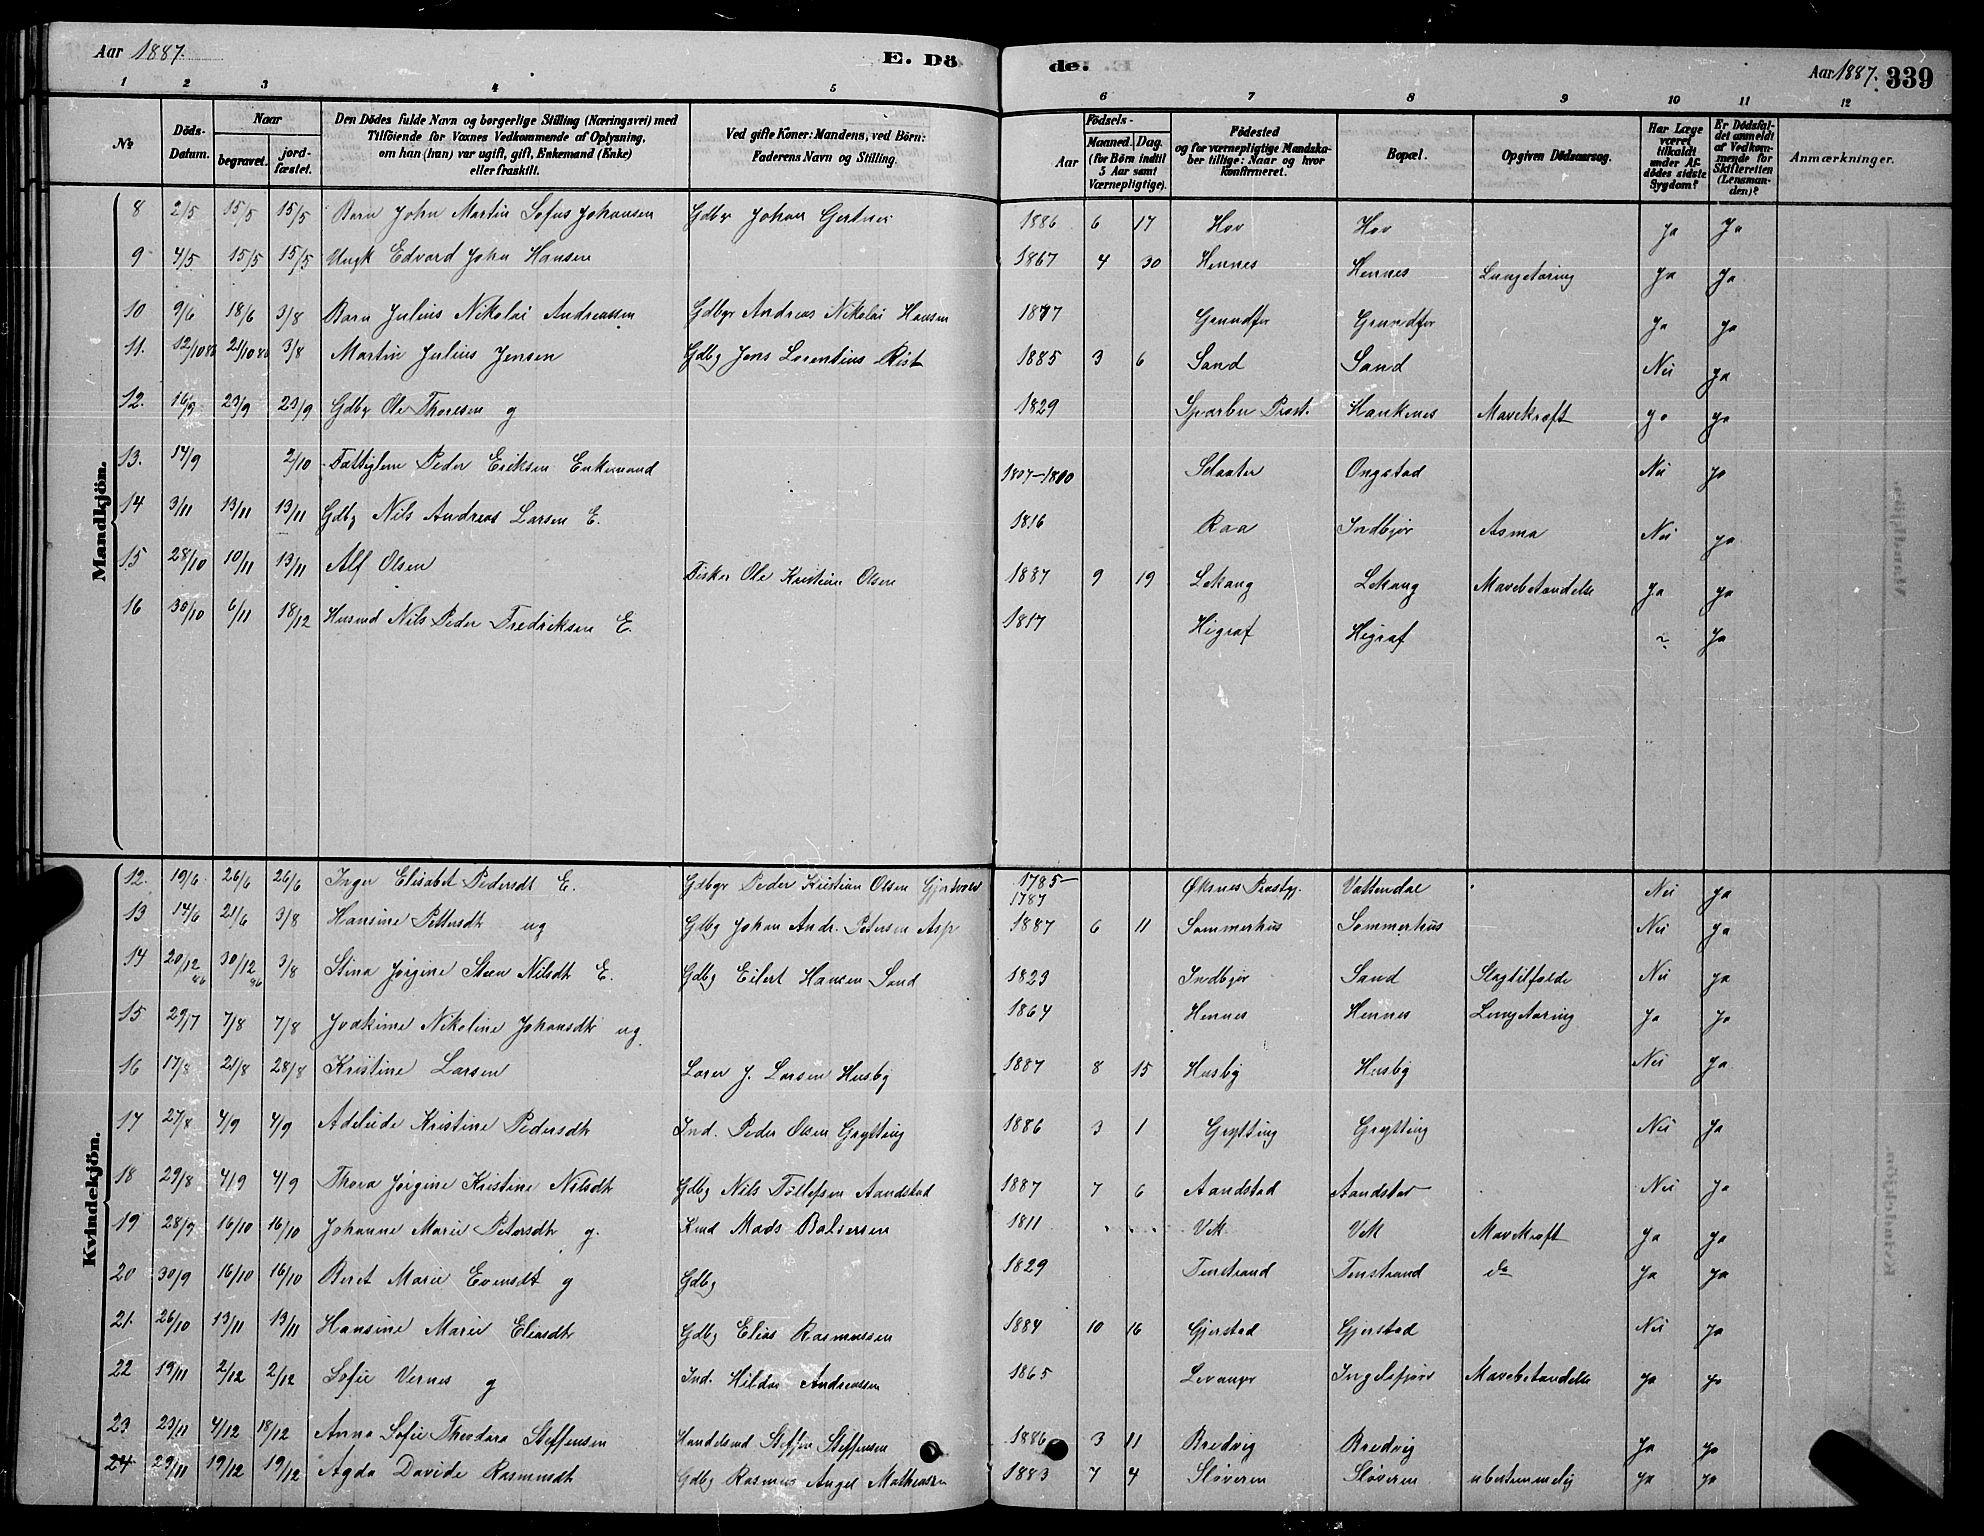 Aar 1887. E. Dö de. Aar 1887. 339
1 2 3 4 5 6 7 8 9 10 11 12
№ Döds-Datum. Naar begravet. jord-fæstet. Den Dödes fulde Navn og borgerlige Stilling (Næringsvei) med Tilföiende for Voxnes Vedkommende af Oplysning, om han (hun) var ugift, gift, Enkemand (Enke) eller fraskilt. Ved gifte Koner: Mandens, ved Börn: Faderens Navn og Stilling. Födsels- Aar Maaned. Dag. (for Börn indtil 5 Aar samt Værnepligtige). Födested og for værnepligtige Mandskaber tillige: Naar og hvor konfirmeret. Bopæl. Opgiven Dödsaarsag. Har Læge været tilkaldt under Afdödes sidste Sygdom? Er Dödsfaldet anmeldt af Vedkommende for Skifteretten (Lensmanden)? Anmærkninger.
Mandkjön.
8 2/5 15/5 15/5 Barn John Martin Sofus Johansen Gdbgr Johan 1886 6 17 Hov Hov Ja Ja
9 4/5 15/5 15/5 Ungk Edvard John Hansen 1867 4 30 Hennes Hennes Lungetæring Ja Ja
10 9/6 18/6 3/8 Barn Julius Nikolai Andreassen Gdbgr Andreas Nikolai Hansen Grundfør Grundfør Ja Ja
11. 12/10 86 21/10 86 3/8 Martin Julius Jensen Gdbg Jens Lorentius Rist 1885 3 6 Sand Sand Nei Ja
12. 16/9 23/9 23/9 Gdbgr Ole Thoresen g 1829 Sparbu Præst. Haukenes Mavekræft Ja Ja
13. 14/9 2/10 Fattiglem Peder Eriksen Enkemand 1807-1810 Slaater Ongstad Nei Ja
14 3/11 13/11 13/11 Gdbg Nils Andreas Larsen E. 1816 Raa Indbjør Asma Nei Ja
15 28/10 10/11 13/11 Alf Olsen Fisker Ole Kristian Olsen 1887 9 19 Lekang Lekang Mavebetændelse Ja Ja
16 30/10 6/11 18/12 Husmd Nils Peder Fredriksen E. 1817 Higraf Higraf Ja
Kvindekjön.
12. 19/6 26/6 26/6 Inger Elisabet Pedersdt E. Gdbgr Peder Kristian Olsen 1785-1787 Øksnes Præstgj. Vottendal Nei Ja
13 14/6 21/6 3/8 Hansine Pettersdt ug Gdbg Johan Andr. Petersen Asp 1887 6 11 Sommerhus Sommerhus Nei Ja
14 20/12 86 30/12 86 3/8 Stina Jørgine Steen Nilsdt E. Gdbg Eilert Hansen Sand 1823 Indbjør Sand Slagtilfælde Nei Ja
15 29/7 7/8 7/8 Joakime Nikoline Johansdt ug 1864 Hennes Hennes Lungetæring Ja Ja
16 17/8 21/8 28/8 Kristine Larsen Lorer J. Larsen Husby 1887 8 15 Husby Husby Nei Ja
17 27/8 4/9 4/9 Adeleide Kristine Pedersdt Ind. Peder Olsen Grytting 1886 3 1 Grytting Grytting Nei Ja
18 29/8 4/9 4/9 Thora Jørgine Kristine Nilsdt Gdbg Nils Tollefsen Aandstad 1887 7 6 Aandstad Aandstad Nei Ja
19 28/9 16/10 16/10 Johanne Marie Petersdt g. Kmd Mads Baltersen 1811 Vik Vik Mavekræft Ja Ja
20 30/9 16/10 16/10 Beret Marie Evensdt g Gdbg 1829 Finstrand Finstrand do Ja Ja
21. 26/10 13/11 13/11 Hansine Marie Eliasdt Gdbg Elias Rasmussen 1884 10 16 Gjerstad Gjerstad Nei Ja
22 19/11 2/12 2/12 Sofie Vernes g Ind. Hildor Andreassen 1865 Levanger Ingelsfjord Mavebetændelse Ja Ja
23 23/11 4/12 18/12 Anna Sofie Theodora Steffensen Handelsmd Steffen Steffensen 1886 3 11 Bredvig Bredvig Ja Ja
24 29/11 19/12 19/12 Agda Davide Rasmusdt Gdbg Rasmus Angel Mathiesen 1883 7 4 Sløveren Sløveren ubestemmelig Ja Ja